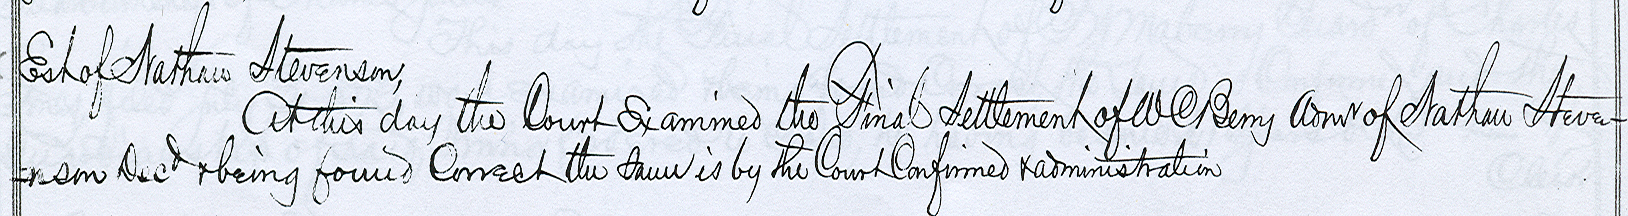 Est of Nathan Stevenson,
At this day the Court Examined the Final Settlement of W C Berry Admr of Nathan Steve-
-nson Decd & being found Correct the same is by the Court Confirmed & administration